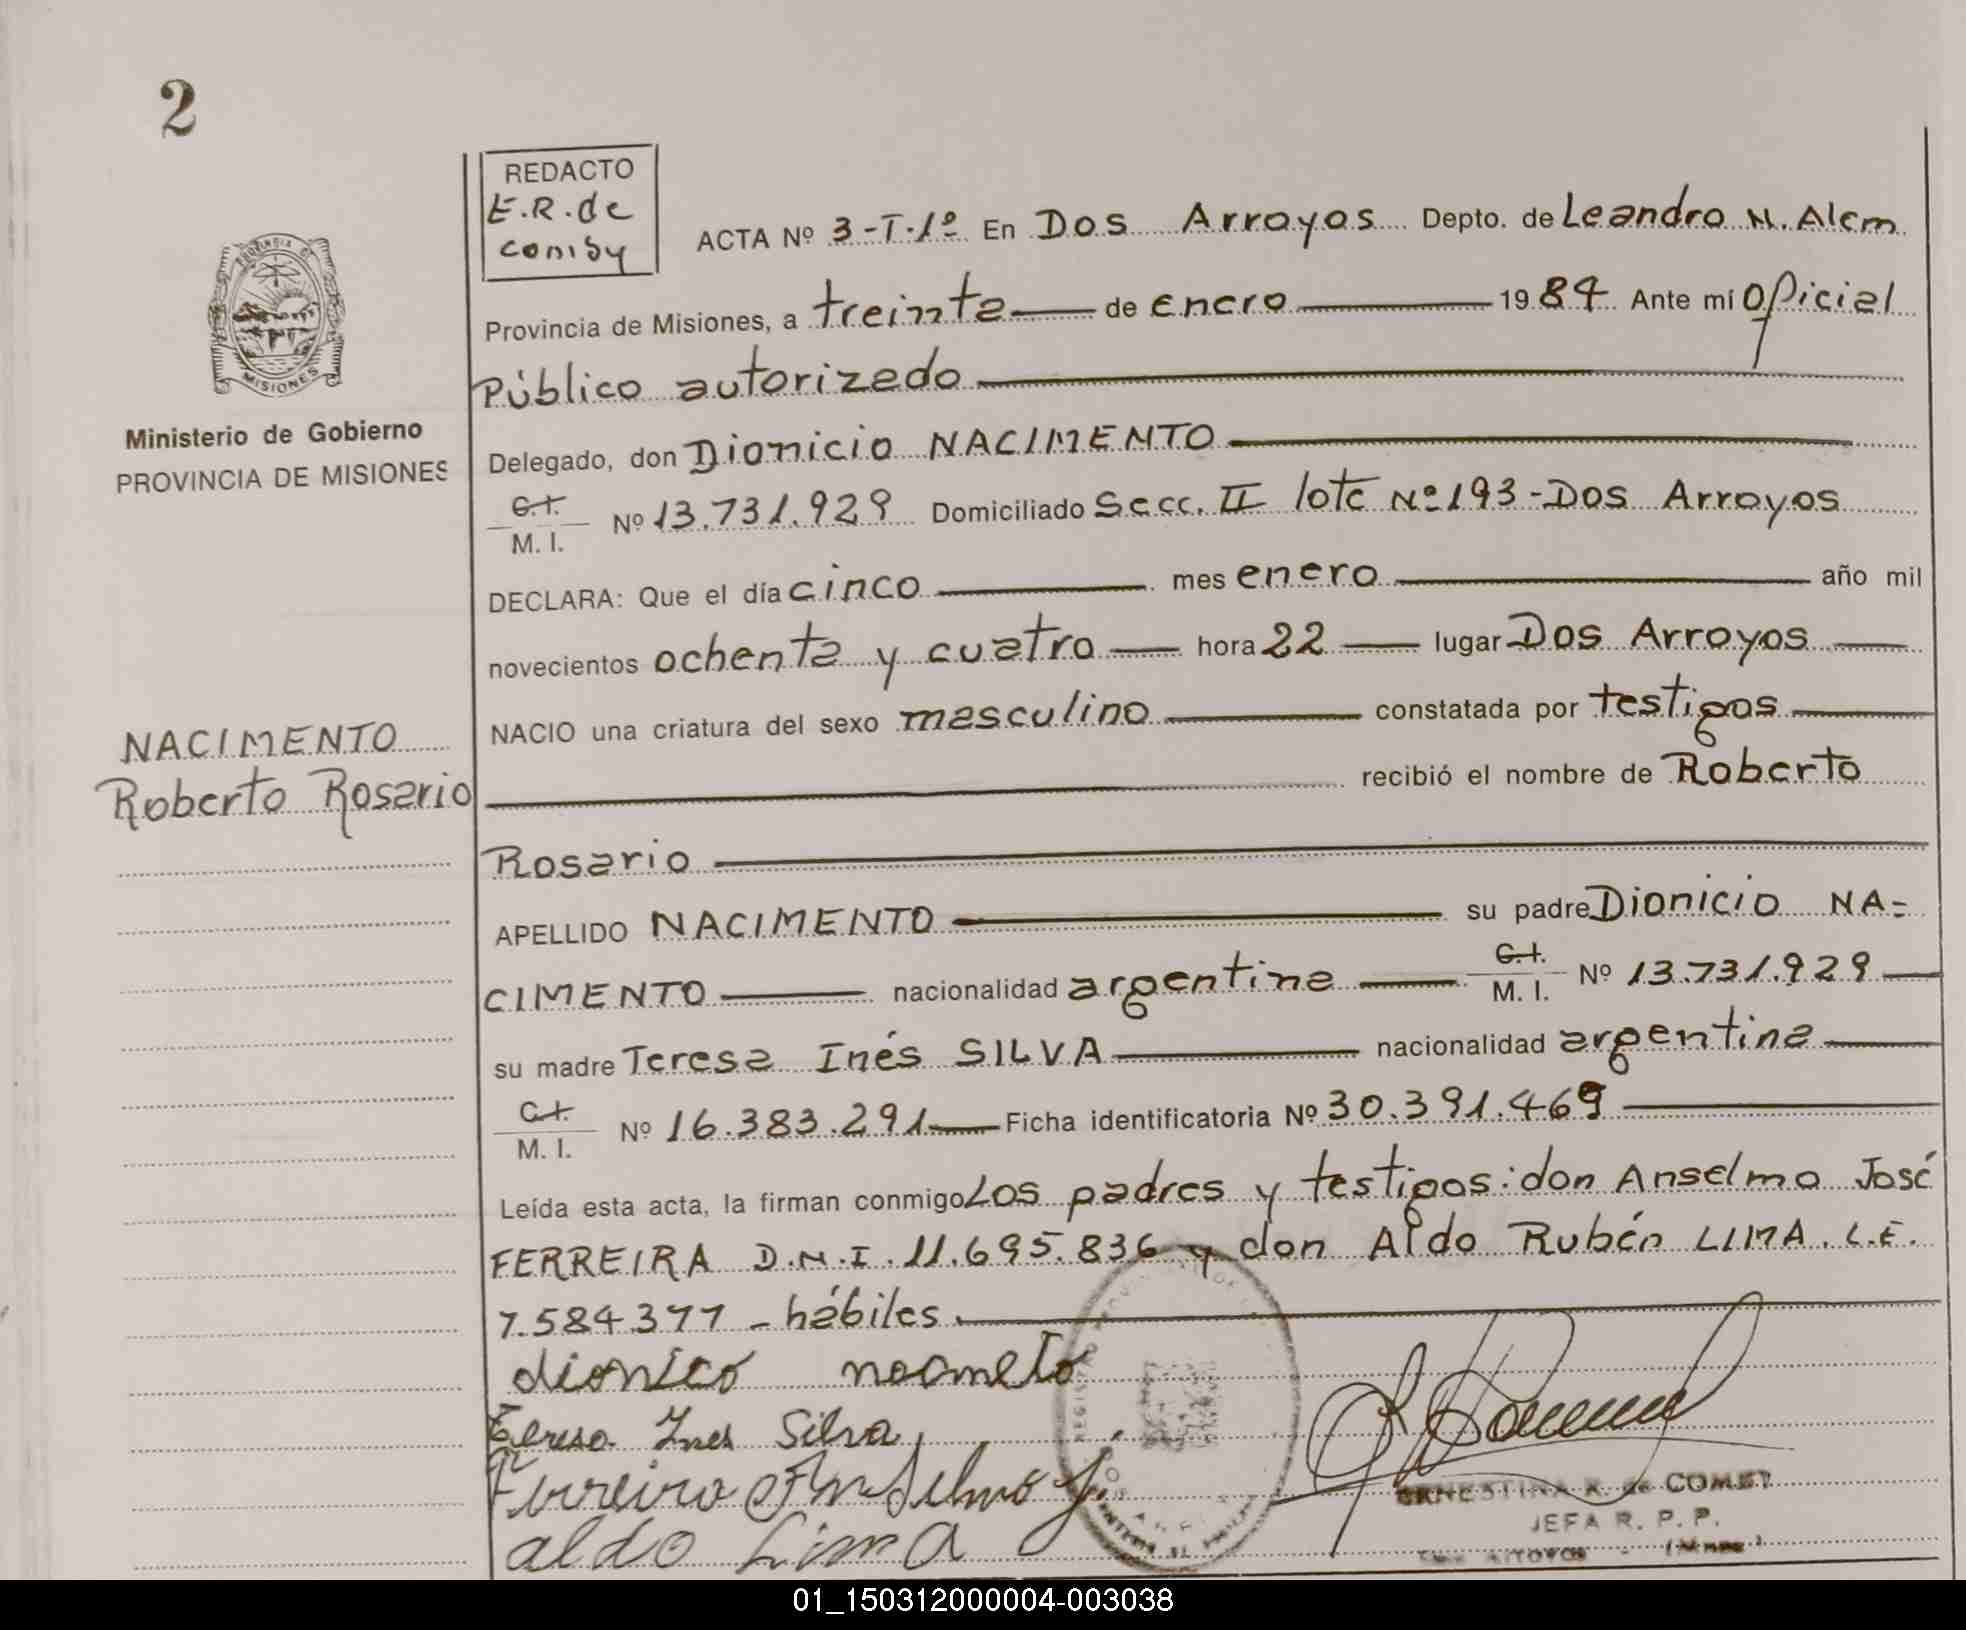 2
REDACTO
E.R. de
ACTA Nº 3-T-1º En Dos Arroyos Depto. de Leandro N. Alem
Provincia de Misiones, a treinta de enero 1984 Ante mí Oficial
Público autorizado
PROVINCIA DE
MISIONES
Ministerio de Gobierno
PROVINCIA DE MISIONES
Delegado, don Dionicio NACIMENTO
C.I.
M. I. Nº 13.731.929 Domiciliado Secc. II lote Nº 193-Dos Arroyos
DECLARA: Que el día cinco mes enero año mil
novecientos ochenta y cuatro hora 22 lugar Dos Arroyos
NACIO una criatura del sexo masculino constatada por testigos
NACIMENTO
Roberto Rosario
recibió el nombre de Roberto
Rosario
APELLIDO NACIMENTO su padre Dionicio NA=
CIMENTO nacionalidad argentina C.I. M. I. Nº 13.731.929
su madre Teresa Inés SILVA nacionalidad argentina
C.I.
M. I. Nº 16.383.291 Ficha identificatoria Nº 30.391.469
Leída esta acta, la firman conmigo Los padres y testigos: don Anselmo José
FERREIRA D.N.I. 11.695.836 y don Aldo Rubén LIMA. L.E.
7.584.377 - hábiles.
dionico
Teresa Ines Silva
Ferreira Anselmo J.
aldo Lima
ERNESTINA R. de
JEFA R. P. P.
01_150312000004-003038